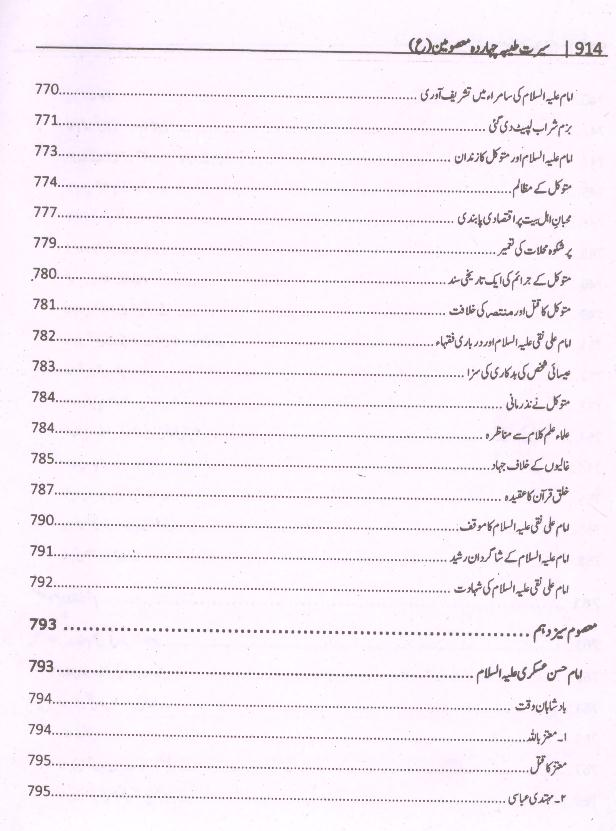 914 | سیرت طیبہ چہاردہ معصومین (ع)
امام علیہ السلام کی سامراء میں تشریف آوری ........ 770
بزم شراب لپیٹ دی گئی ........ 771
امام علیہ السلام اور متوکل کا زندان ........ 773
متوکل کے مظالم ........ 774
محبان اہل بیت پر اقتصادی پابندی ........ 777
پر شکوہ محلات کی تعمیر ........ 779
متوکل کے جرائم کی ایک تاریخی سند ........ 780
متوکل کا قتل اور منتصر کی خلافت ........ 781
امام علی نقی علیہ السلام اور درباری فقہاء ........ 782
عیسائی شخص کی بدکاری کی سزا ........ 783
متوکل نے نذر مانی ........ 784
علماء علم کلام سے مناظرہ ........ 784
غالیوں کے خلاف جہاد ........ 785
خلق قرآن کا عقیدہ ........ 787
امام علی نقی علیہ السلام کا موقف ........ 790
امام علیہ السلام کے شاگردان رشید ........ 791
امام علی نقی علیہ السلام کی شہادت ........ 792
معصوم سیزدہم ........ 793
امام حسن عسکری علیہ السلام ........ 793
بادشاہان وقت ........ 794
۱۔ معتز باللہ ........ 794
معتز کا قتل ........ 795
۲۔ مہتدی عباسی ........ 795